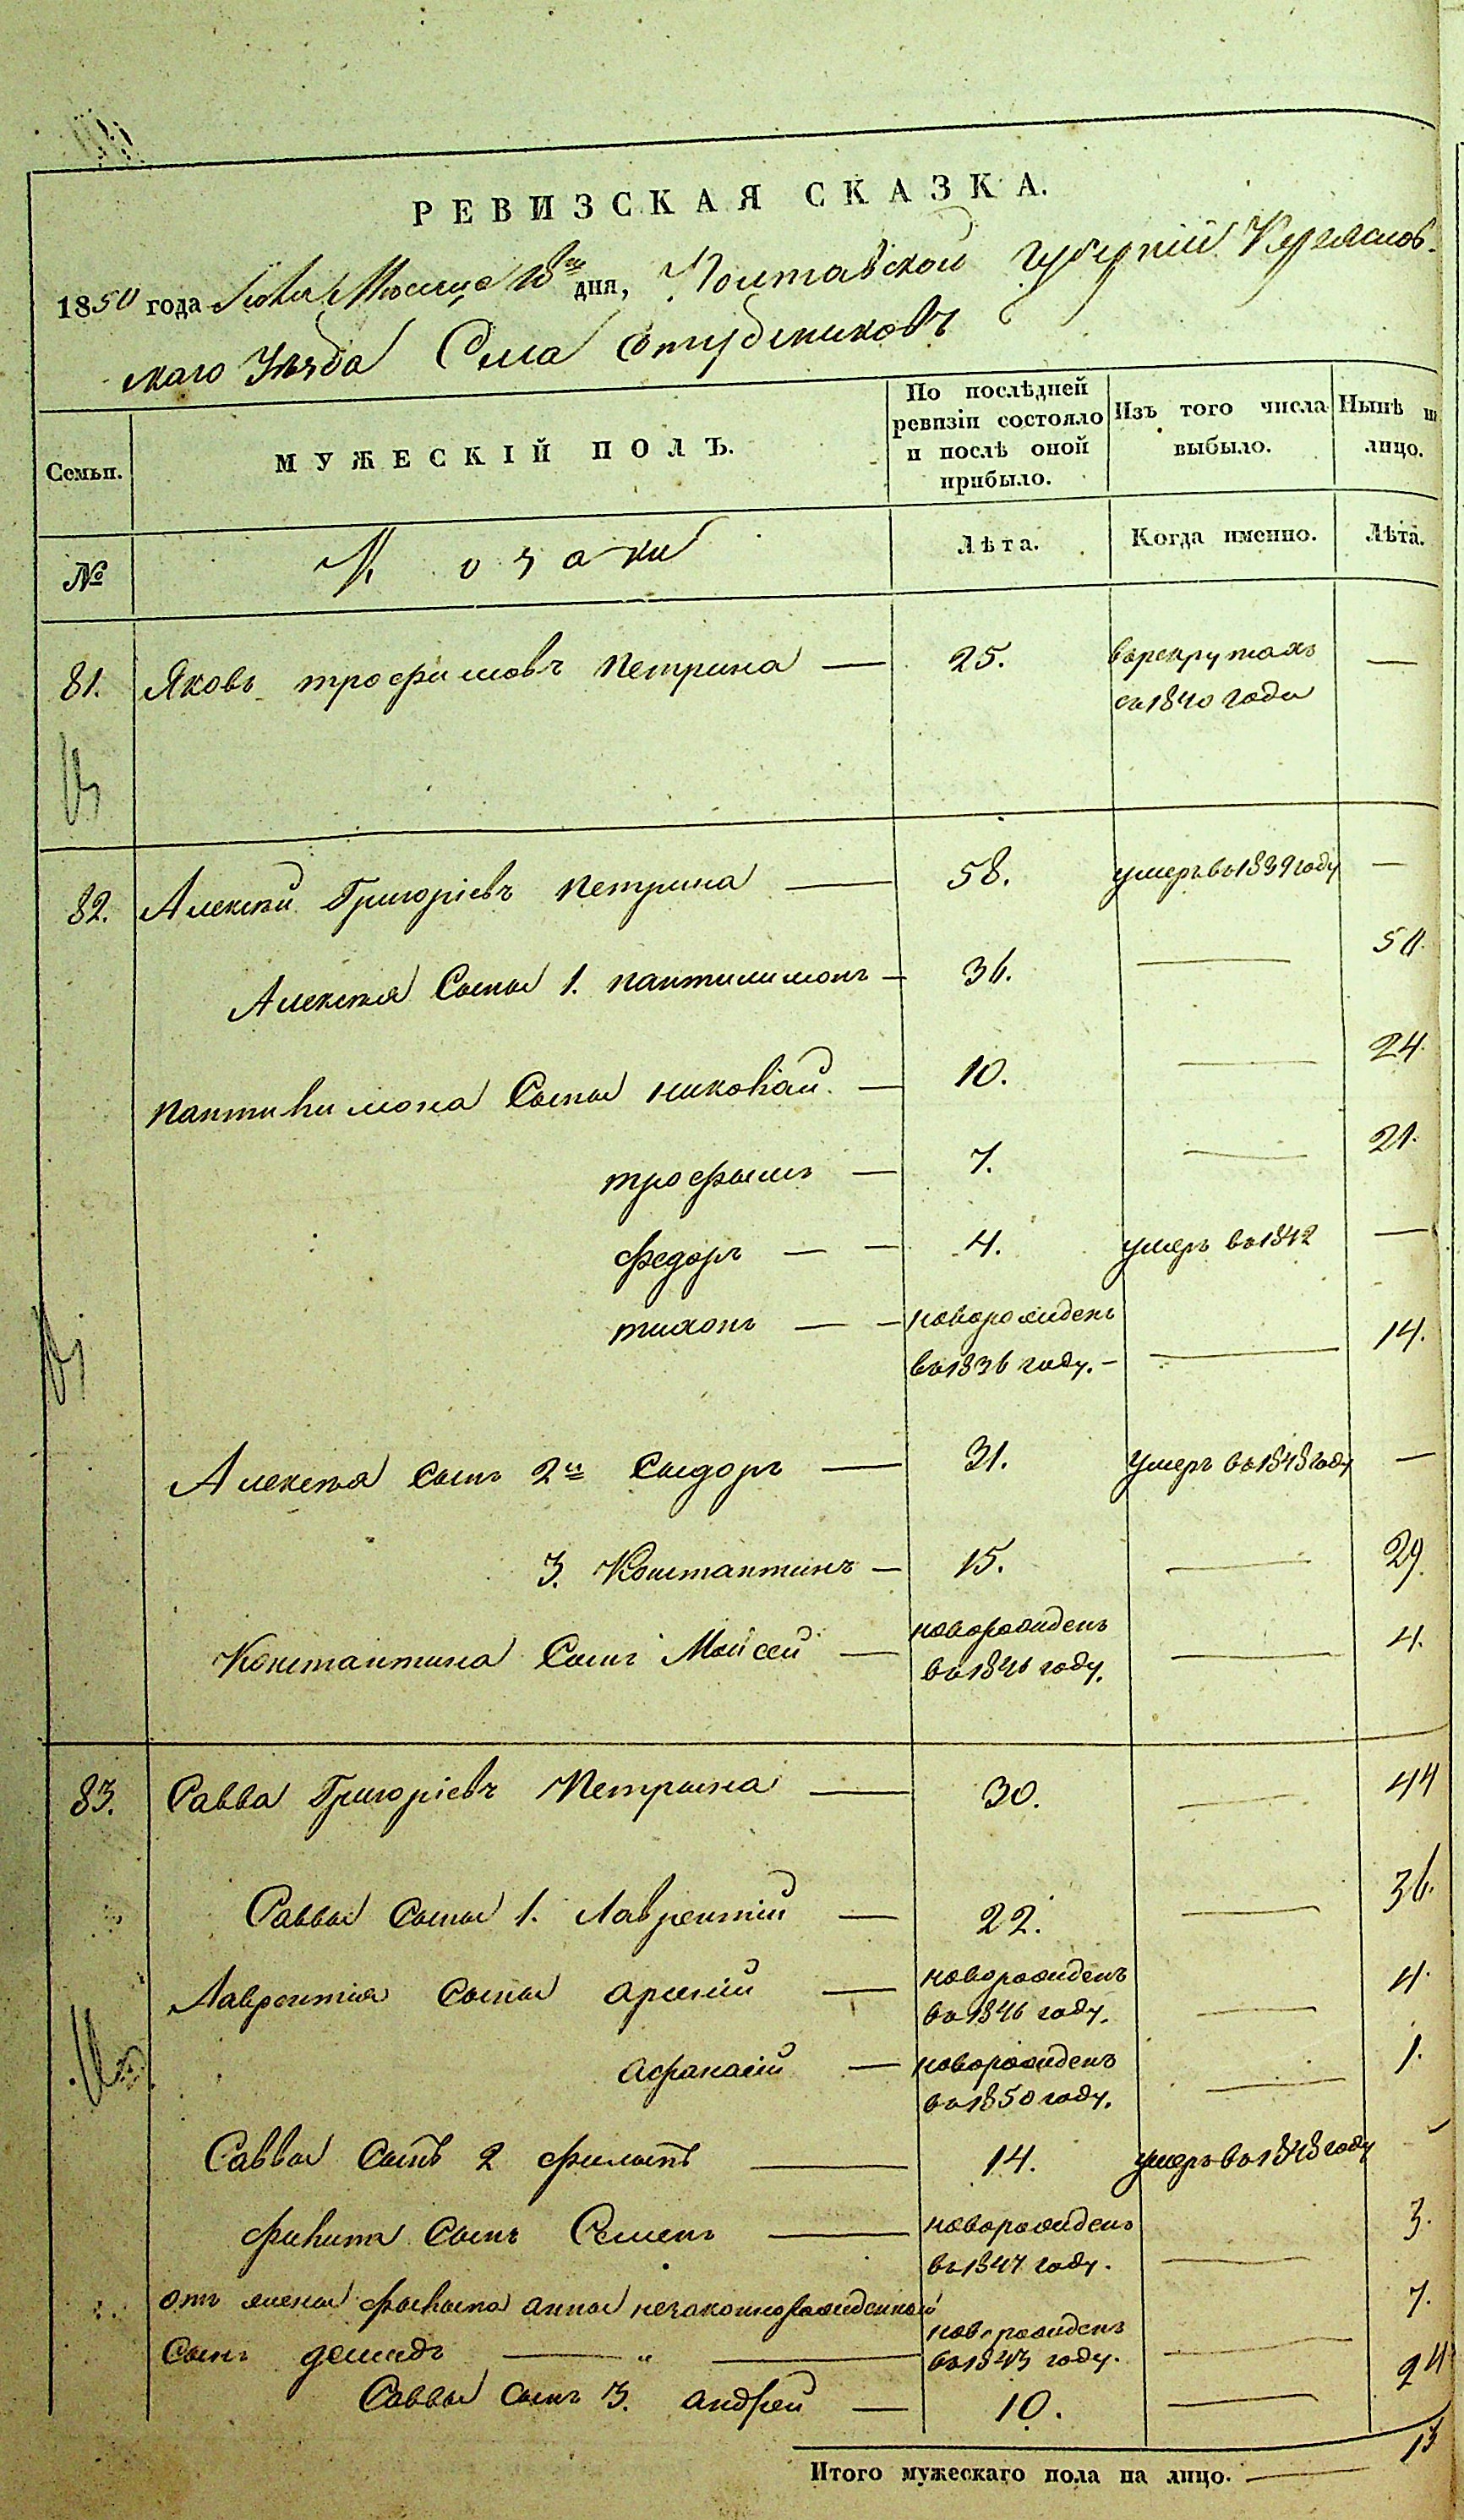 РЕВИЗСКАЯ СКАЗКА.
1850 года Мѣсяца 18го дня, Полтавской Губерніи Переяслов-
скаго Уѣзда Села Студениковъ
Семьи. МУЖЕСКІЙ ПОЛЪ. По послѣдней ревизіи состояло и послѣ оной прибыло. Изъ того числа выбыло. Нынѣ на лицо.
№ Козаки Лѣта. Когда именно. Лѣта.
81. Яковъ трофимовъ петрина — 25. въ рекрутахъ —
съ 1840 года
82. Алексѣй Григоріевъ петрина — 58. умеръ въ 1839 году —
Алексѣя Сыны 1. пантилимонъ — 36. — 50.
пантилимона Сыны николай — 10. — 24.
трофымъ — 7. — 21.
федоръ — — 4. умеръ въ 1842 —
тихонъ — — новорожденъ
въ 1836 году. — — 14.
Алексѣя сынъ 2й Сыдоръ — 31. умеръ въ 1848 году —
3. Константинъ — 15. — 29.
Константина Сынъ Мойсей — новорожденъ — 4.
въ 1846 году.
83. Савва Григоріевъ Петрына — 30. — 44
Саввы сыны 1. Лаврентій — 22. — 36.
Лаврентія сыны арсеній — новорожденъ — 4.
въ 1846 году.
афанасій — новорожденъ — 1.
въ 1850 году.
Саввы сынъ 2 филатъ — 14. умеръ въ 1848 году —
филата сынъ Семенъ — новорожденъ — 3.
въ 1847 году.
отъ жены филата анны незаконнорожденной
новорожденъ — 7.
сынъ демидъ — " — въ 1843 году.
Саввы сынъ 3. андрей — 10. — 24
Итого мужескаго пола на лицо. — 13